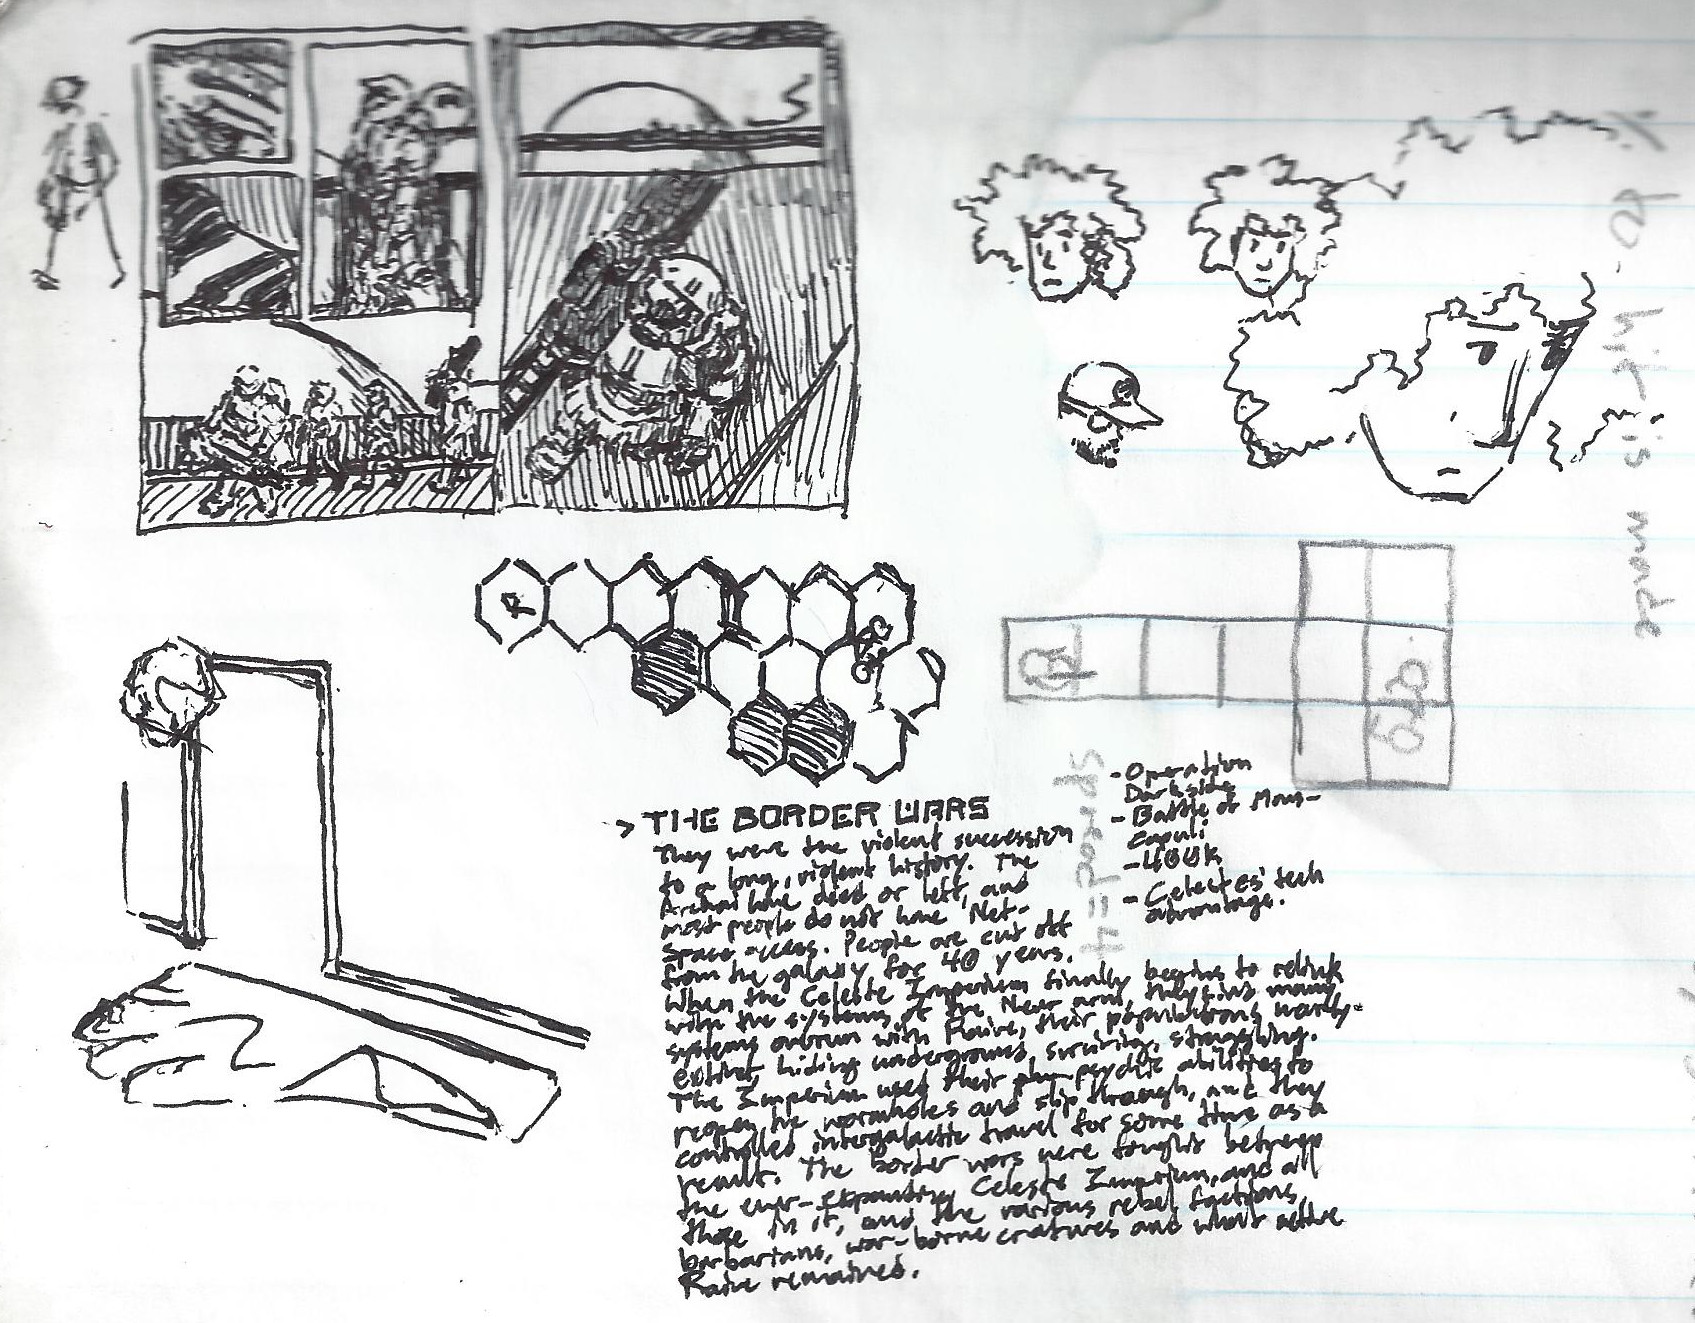 THE BORDER WARS
They were the violent succession
to a long, violent history. The
have died or left, and
most people do not have Net-
Space access. People are cut off
from the galaxy for 40 years.
When the Celeste Imperium finally begins to relink
with the systems of the Near arm, they find many
systems overrun with Raive, their populations nearly-
extinct, hiding underground, surviving, struggling.
The Imperium used their psychic abilities to
reopen the wormholes and slip through, and they
controlled intergalactic travel for some time as a
result. The Border wars were fought between
the ever-expanding Celeste Imperium, and all
those in it, and the various rebel factions,
barbarians, war-borne creatures and what active
Raive remained.
- Operation
Darkside
- Battle of Mons-
Capuli
- 400k
- Celestes' tech
advantage.